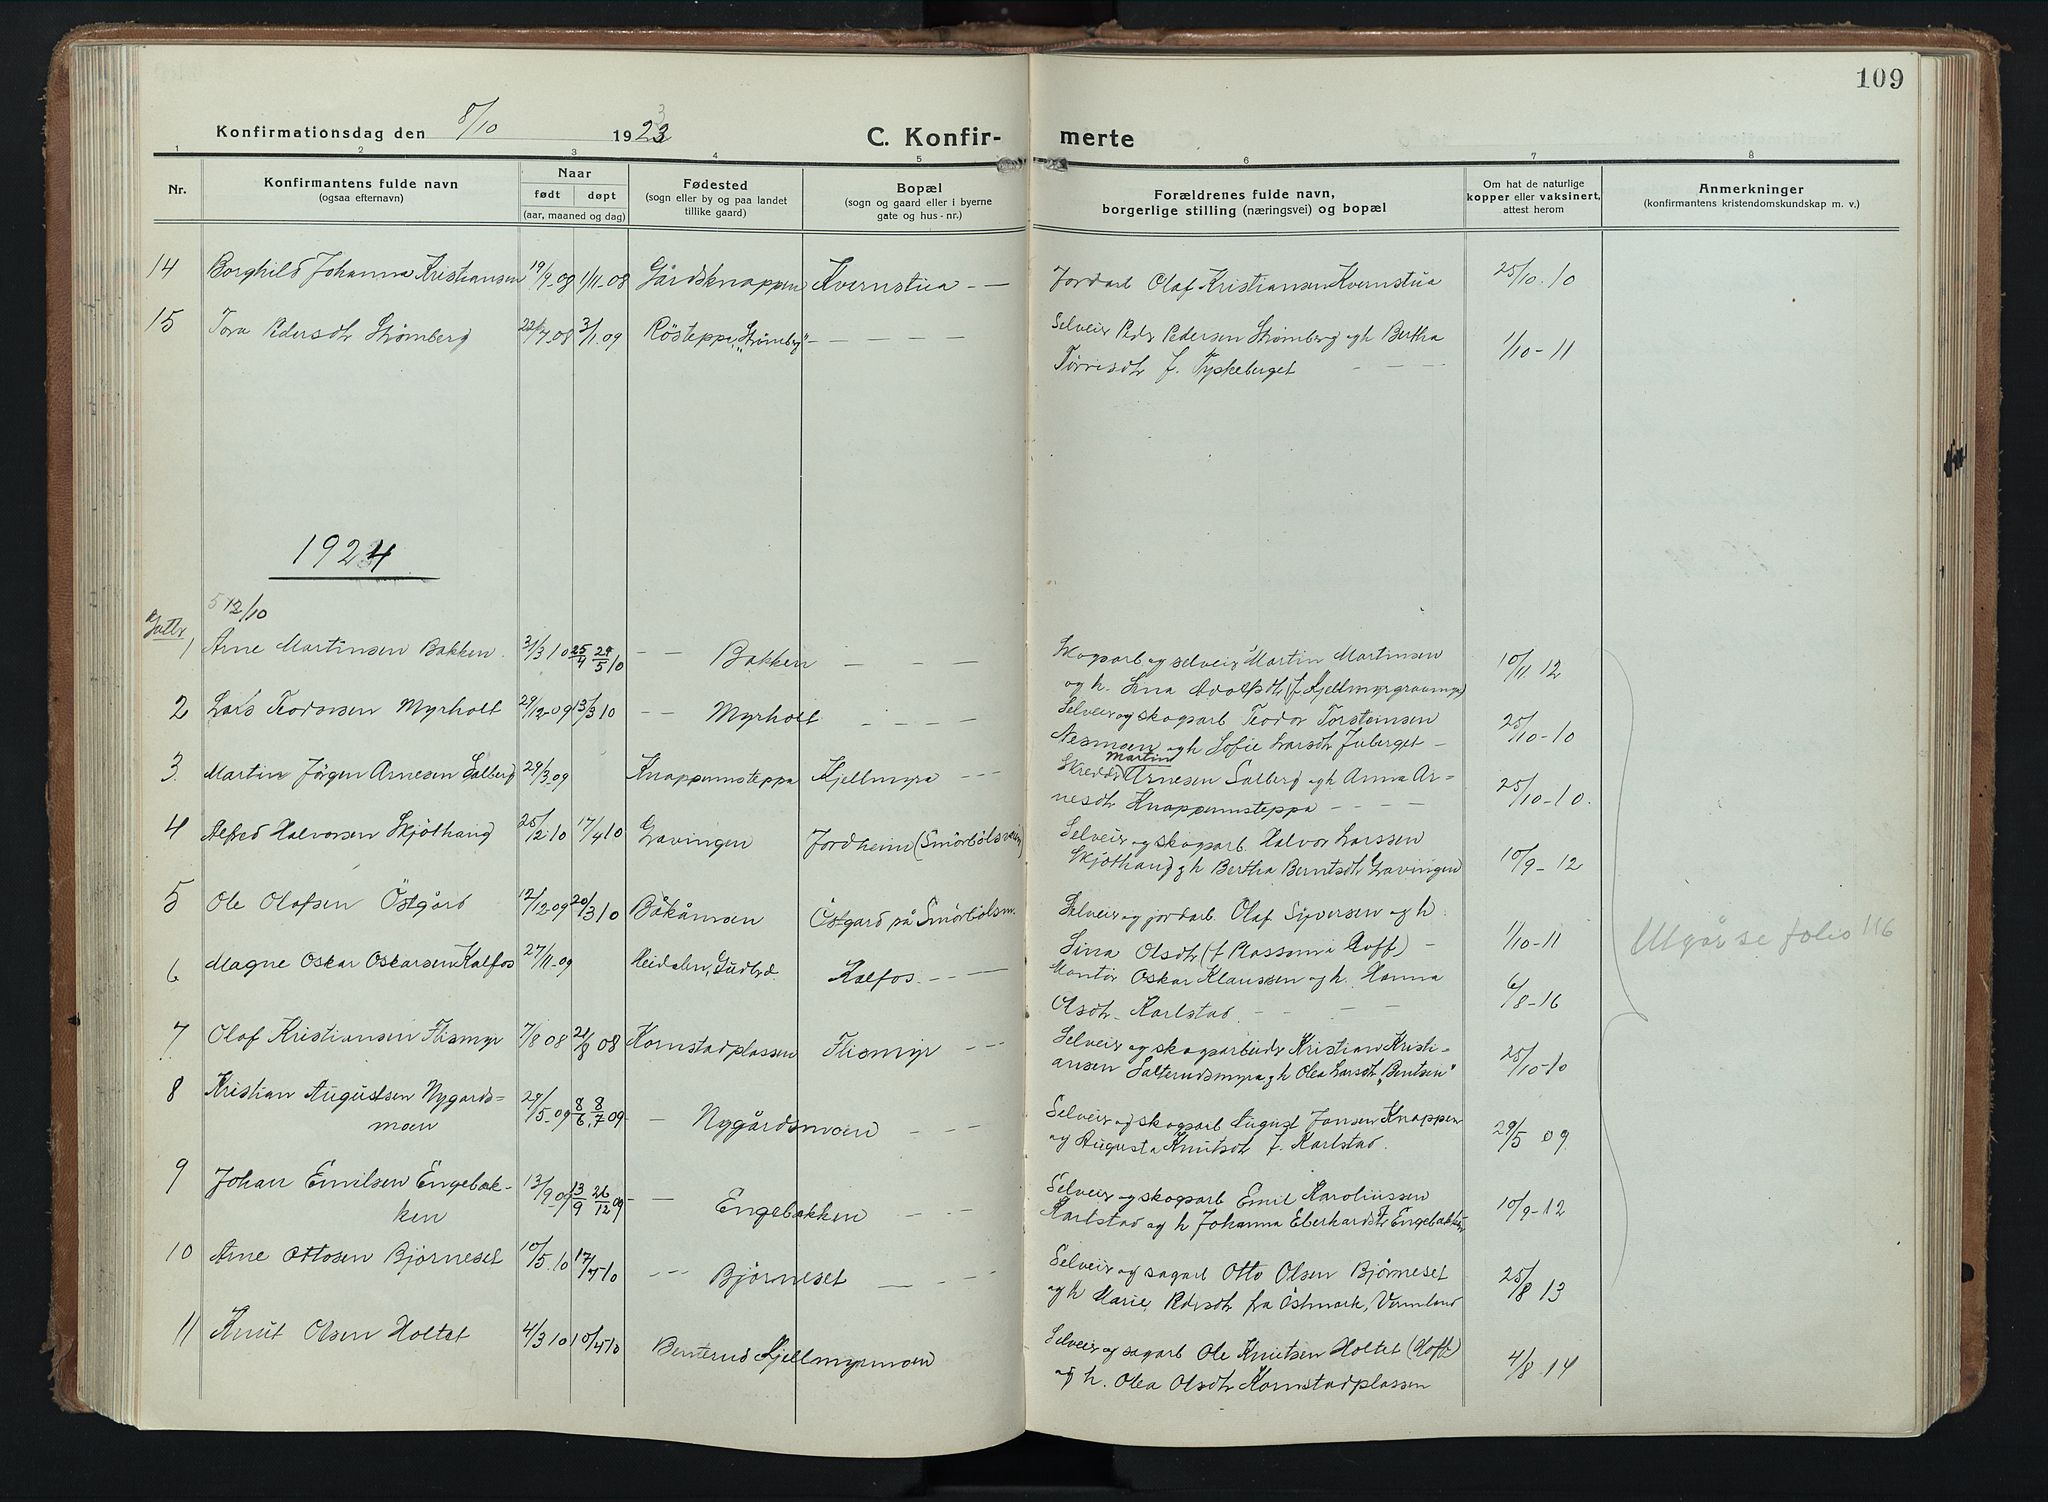 109
Konfirmationsdag den 8/10 1923
3
C. Konfir- merte
1 2 3 4 5 6 7 8
Nr.
Konfirmantens fulde navn
(ogsaa efternavn)
Naar
født døpt
(aar, maaned og dag)
Fødested
(sogn eller by og paa landet
tillike gaard)
Bopæl
(sogn og gaard eller i byerne
gate og hus-nr.)
Forældrenes fulde navn,
borgerlige stilling (næringsvei) og bopæl
Om hat de naturlige
kopper eller vaksinert,
attest herom
Anmerkninger
(konfirmantens kristendomskundskap m. v.)
14 Borghild Johanna Kristiansen 19/9-08 1/11-08 Gårdsknappen Kvernstua - — Jordarb Olaf Kristiansen Kvernstua 25/10.10
15 Tora Pedersdtr Strømberg 22/7.08 3/1.09 Røsteppa, „Strømberg" - — — — Selveir Peder Pedersen Strømberg og h Bertha 1/10-11
Tørrisdtr f. Tyskeberget — — —
1924
12/10
Gutter
1 Arne Martinsen Bakken. 31/3 10 25/4 24/5 10 — — Bakken — — — Skogsarb og selveir Martin Martinsen 10/11 12
og h. Lina Adolfsdtr (f. Kjellmyrgravmyr)
2 Lars Teodorsen Myrholt 29/12-09 13/3 10 — — Myrholt — — — Selveir og skogsarb Teodor Torsteinsen 25/10-10
Nesmoen og h Sofie Larsdtr Juberget —
3. Martin Jörgen Arnesen Salberg 29/3.09 Knappermsteppa Kjellmyra — — — Skredder Martin Arnesen Salberg og h Anna Ar= 25/10-10.
nesdtr Knappermsteppa — — — —
4 Alfred Halvorsen Skjölhaug 25/2.10 17/4 10 Gravingen Jordheim (Smörbölsveien) Selveir og skogsarb. Halvor Larssen 10/9-12
Skjölhaug og h Bertha Berntsdtr Gravingen
5 Ole Olafsen Östgård 12/12 09 20/3 10 Båkåmoen Östgard på Smörbölsm. Selveir og jordarb. Olaf Syversen og h 1/10-11
Lina Olsdtr (f Plassen i Hoff) —
6 Magne Oskar Oskarsen Kalfos 27/11-09 Heidalen, Gudbrd. Kalfos. — — — Montör Oskar Klaussen og h. Hanna 6/8-16
Olsdtr Karlstad. — — — —
Utgår se folio 116
7 Olaf Kristiansen Flismyr 7/8 08 21/8 08 Kornstadplassen Flismyr — — — Selveir og skogsarbeider Kristian Kristi= 25/10-10
ansen Salterudsmyra og h Olea Larsdtr „Bentsen"
8 Kristian Augustsen Nygards= 29/5.09 8/6. 8/7 09 — Nygårdsmoen — — — Selveir og skogsarb August Jansen Knappen 29/5 09
moen og Augusta Knutsdtr f. Karlstad.
9 Johan Emilsen Engebak- 13/9.09 13/9 26/12 09 — — Engebakken — — — Selveir og skogsarb Emil Karoliussen 10/9-12
ken Karlstad og h Johanna Eberhardsdtr Engebakken
10 Arne Ottosen Björneset 10/5.10 17/7 10 — — Björneset — — — Selveir og sagarb Otto Olsen Björneset 25/8 13
og h Marie Pedersdtr fra Östmark, Vermland
11 Knut Olsen Holtet 4/3 10 10/4 10 Benterud Kjellmyrmoen Selveir og sagarb Ole Knutsen Holtet (Hoff) 4/8-14
og h. Olea Olsdtr Kornstadplassen